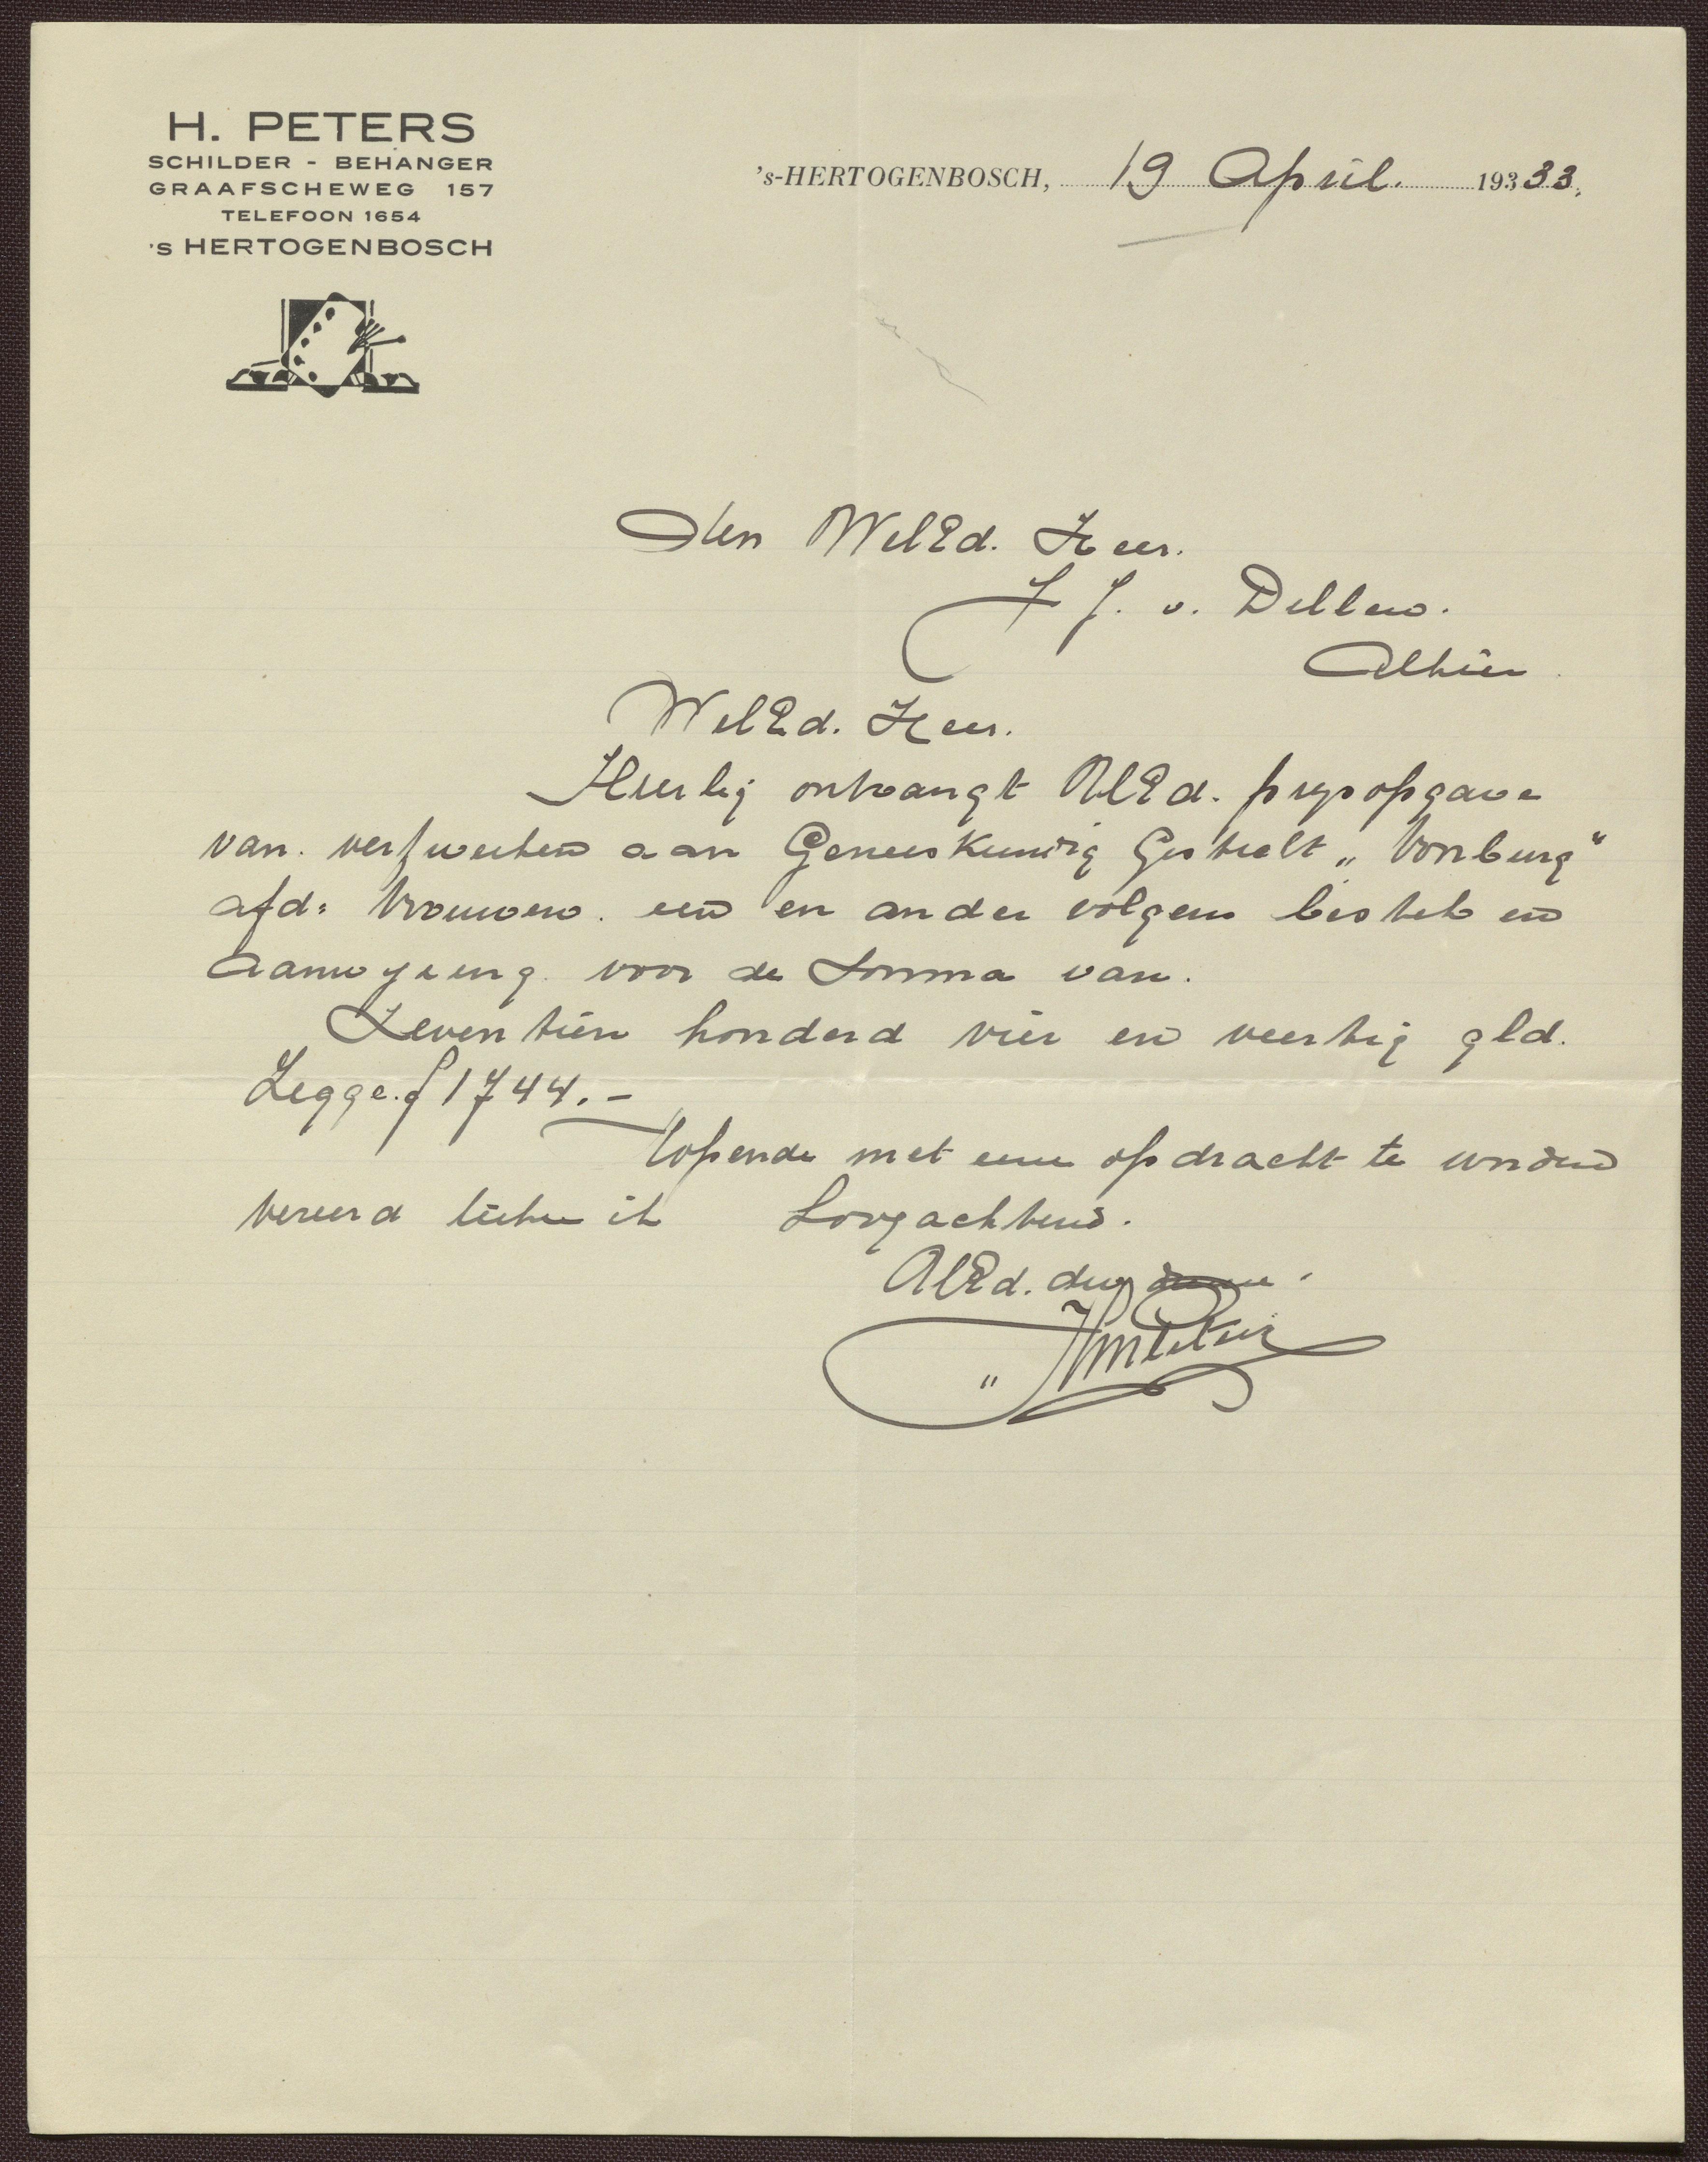 H. PETERS
SCHILDER - BEHANGER
GRAAFSCHEWEG 157
TELEFOON 1654
's HERTOGENBOSCH
's-HERTOGENBOSCH, 19 April. 19333.
Den WelEd. Heer.
J. v. Dellen.
Alhier
WelEd. Heer.
Hierbij ontvangt UEd. prijsopgave
van verfwerken aan Geneeskundig Gesticht „Voorburg"
afd: Vrouwen. een en ander volgens bestek en
aanwyzing voor de Somma van.
Zeventien honderd vier en veertig gld.
Zegge. f 1744.-
Hopende met een opdracht te worden
vereerd teeken ik Hoogachtend.
UEd. dw dienaar.
HPeters